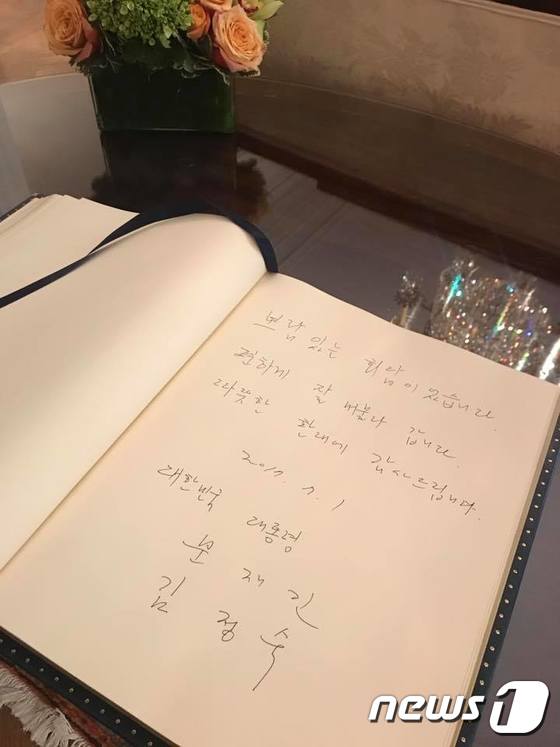 보람 있는 회담이었습니다.
편하게 잘 머물다 갑니다.
따뜻한 환대에 감사드립니다.
2017. 7. 1
대한민국 대통령
문 재 인
김 정 숙
news1